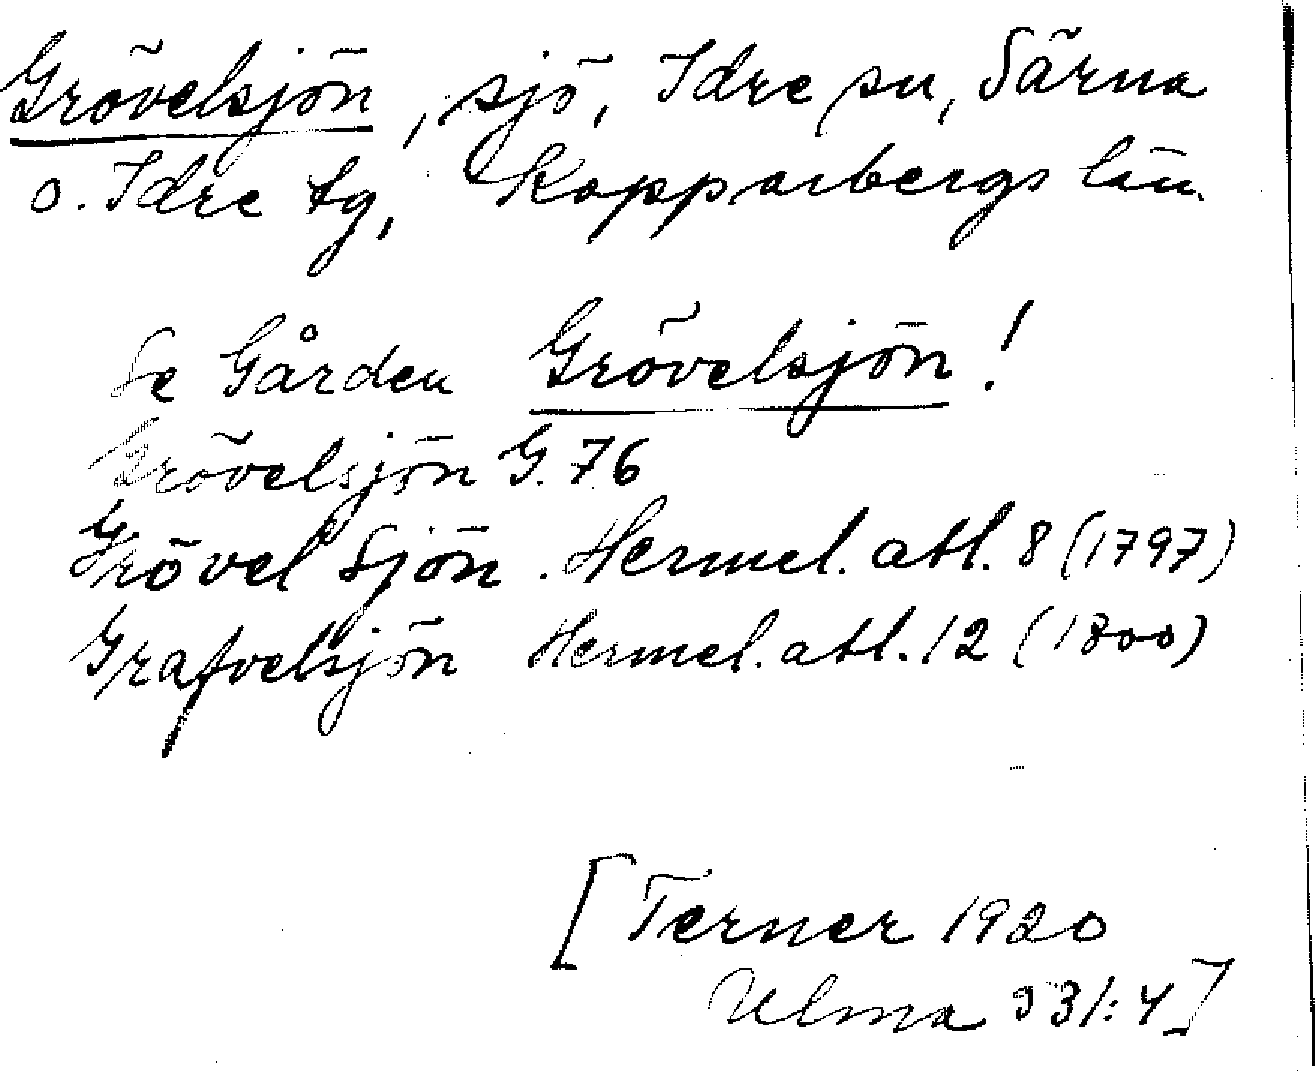 Grövelsjön, sjö, Idre sn, Särna
o. Idre tg, Kopparbergs län.
Se Gården Grövelsjön!
Grövelsjön G. 76
Grövel Sjön. Hermel. atl. 8 (1797)
Grafvelsjön Hermel. atl. 12 (1800)
[Terner 1920
Ulma 931:4]